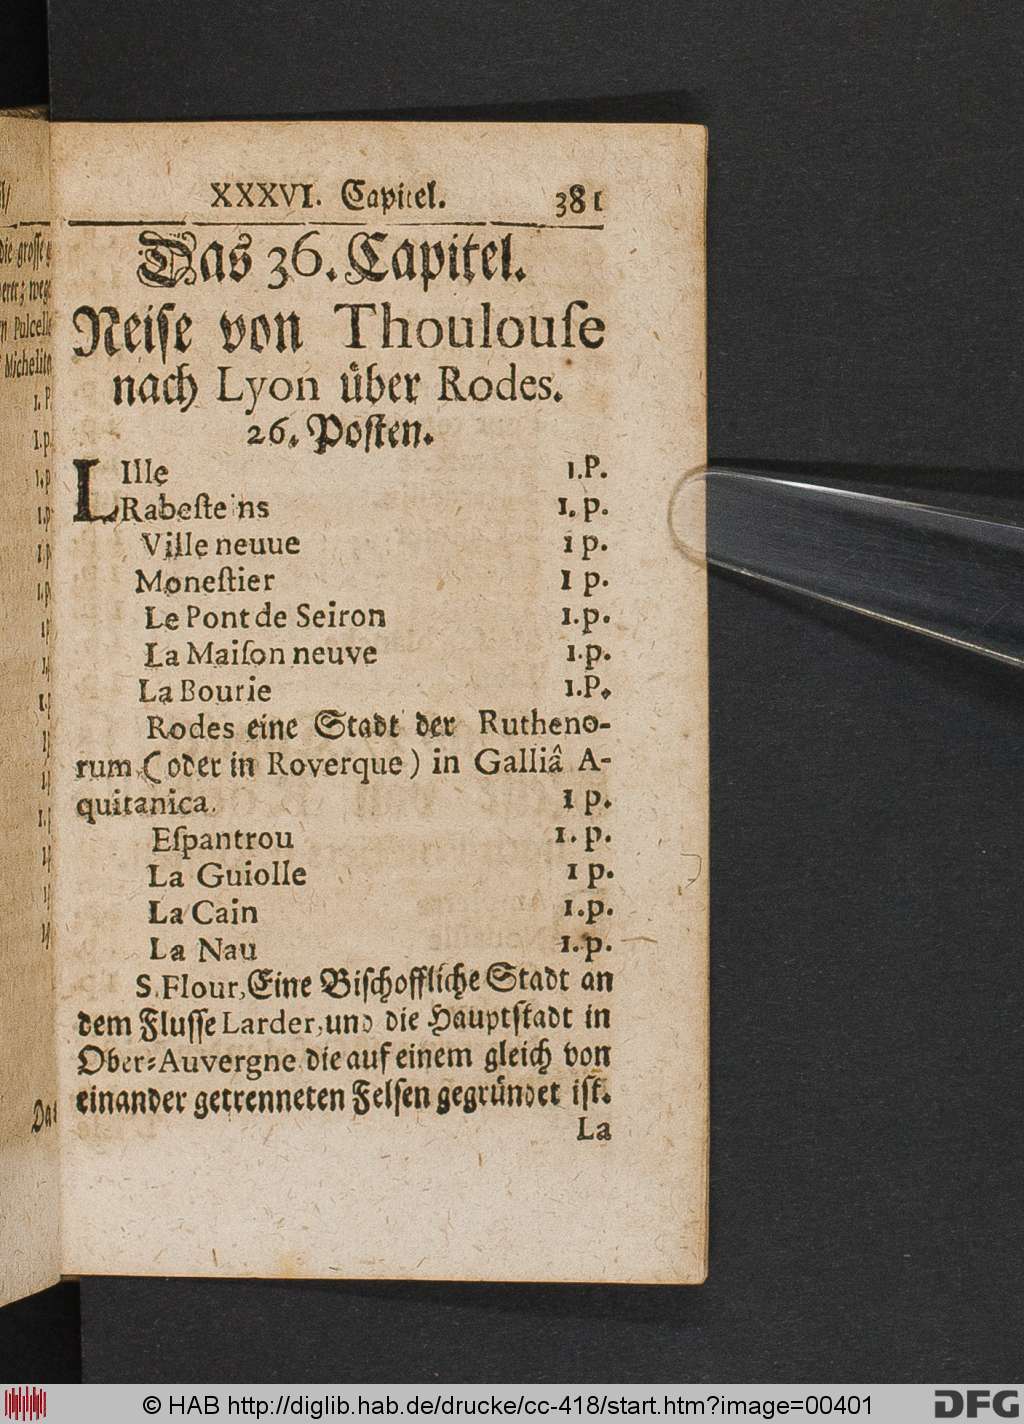 XXXVI. Capitel. 381
Das 36. Capitel.
Reise von Thoulouſe
nach Lyon über Rodes.
26. Posten.
LIlle 1.P.
Rabeſteins 1. p.
Ville neuue 1 p.
Moneſtier 1 p.
Le Pont de Seiron 1.p.
La Maiſon neuve 1.p.
La Bourie 1.P.
Rodes eine Stadt der Rutheno-
rum (oder in Roverque) in Galliâ A-
quitanica. 1 p.
Eſpantrou 1. p.
La Guiolle 1 p.
La Cain 1.p.
La Nau 1.p.
S. Flour, Eine Bischoffliche Stadt an
dem Flusse Larder, und die Hauptstadt in
Ober-Auvergne die auf einem gleich von
einander getrenneten Felsen gegründet ist.
La
die grosse
wege
Pulcelle
Michelito
1. P
1.p
1.p
1.p
1p
1.p
Da
© HAB http://diglib.hab.de/drucke/cc-418/start.htm?image=00401
DFG